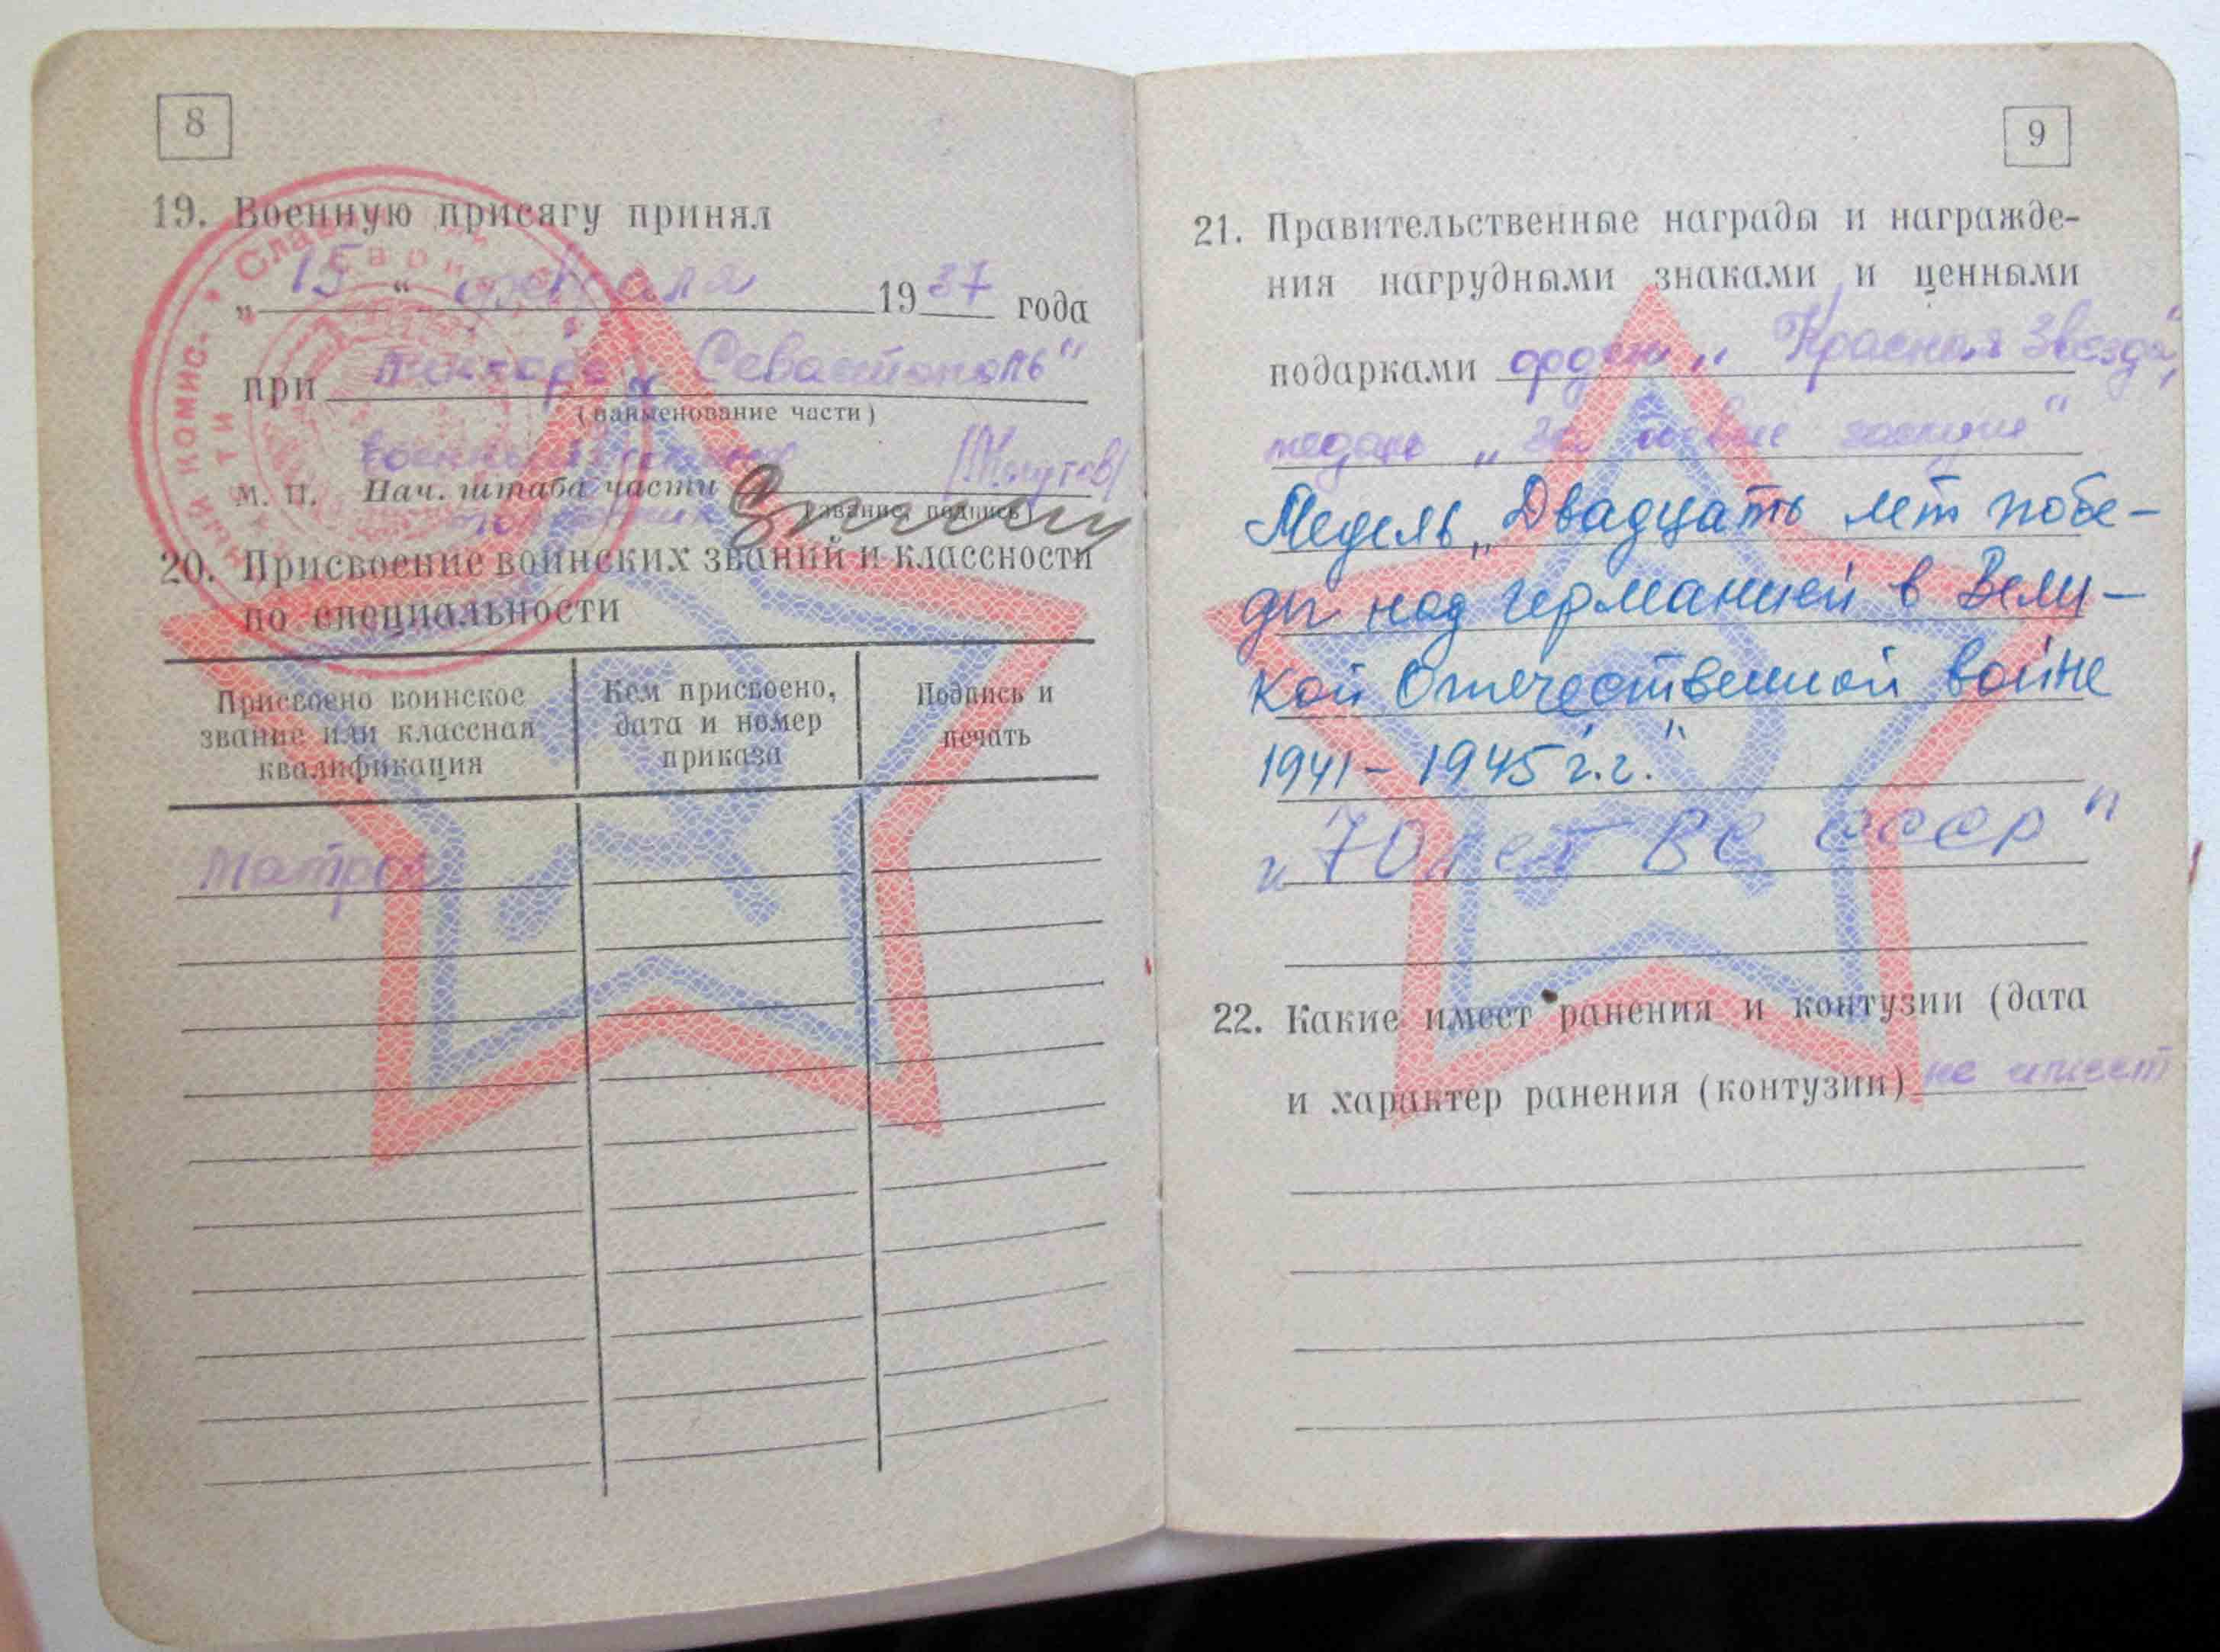 8
19. Военную присягу принял
„ 15 “ февраля 1937 года
при линкоре „Севастополь“
(наименование части)
Военный
М. П. Нач. штаба части
(звание, подпись)
20. Присвоение воинских званий и классности
по специальности
Присвоено воинское
звание или классная
квалификация
Кем присвоено,
дата и номер
приказа
Подпись и
печать
Матрос
9
21. Правительственные награды и награжде-
ния нагрудными знаками и ценными
подарками орден „Красная Звезда“,
медаль „За боевые заслуги“
Медаль „Двадцать лет побе-
ды над Германией в Вели-
кой Отечественной войне
1941-1945 г.г.“
„70 лет ВС СССР“
22. Какие имеет ранения и контузии (дата
и характер ранения (контузии) не имеет